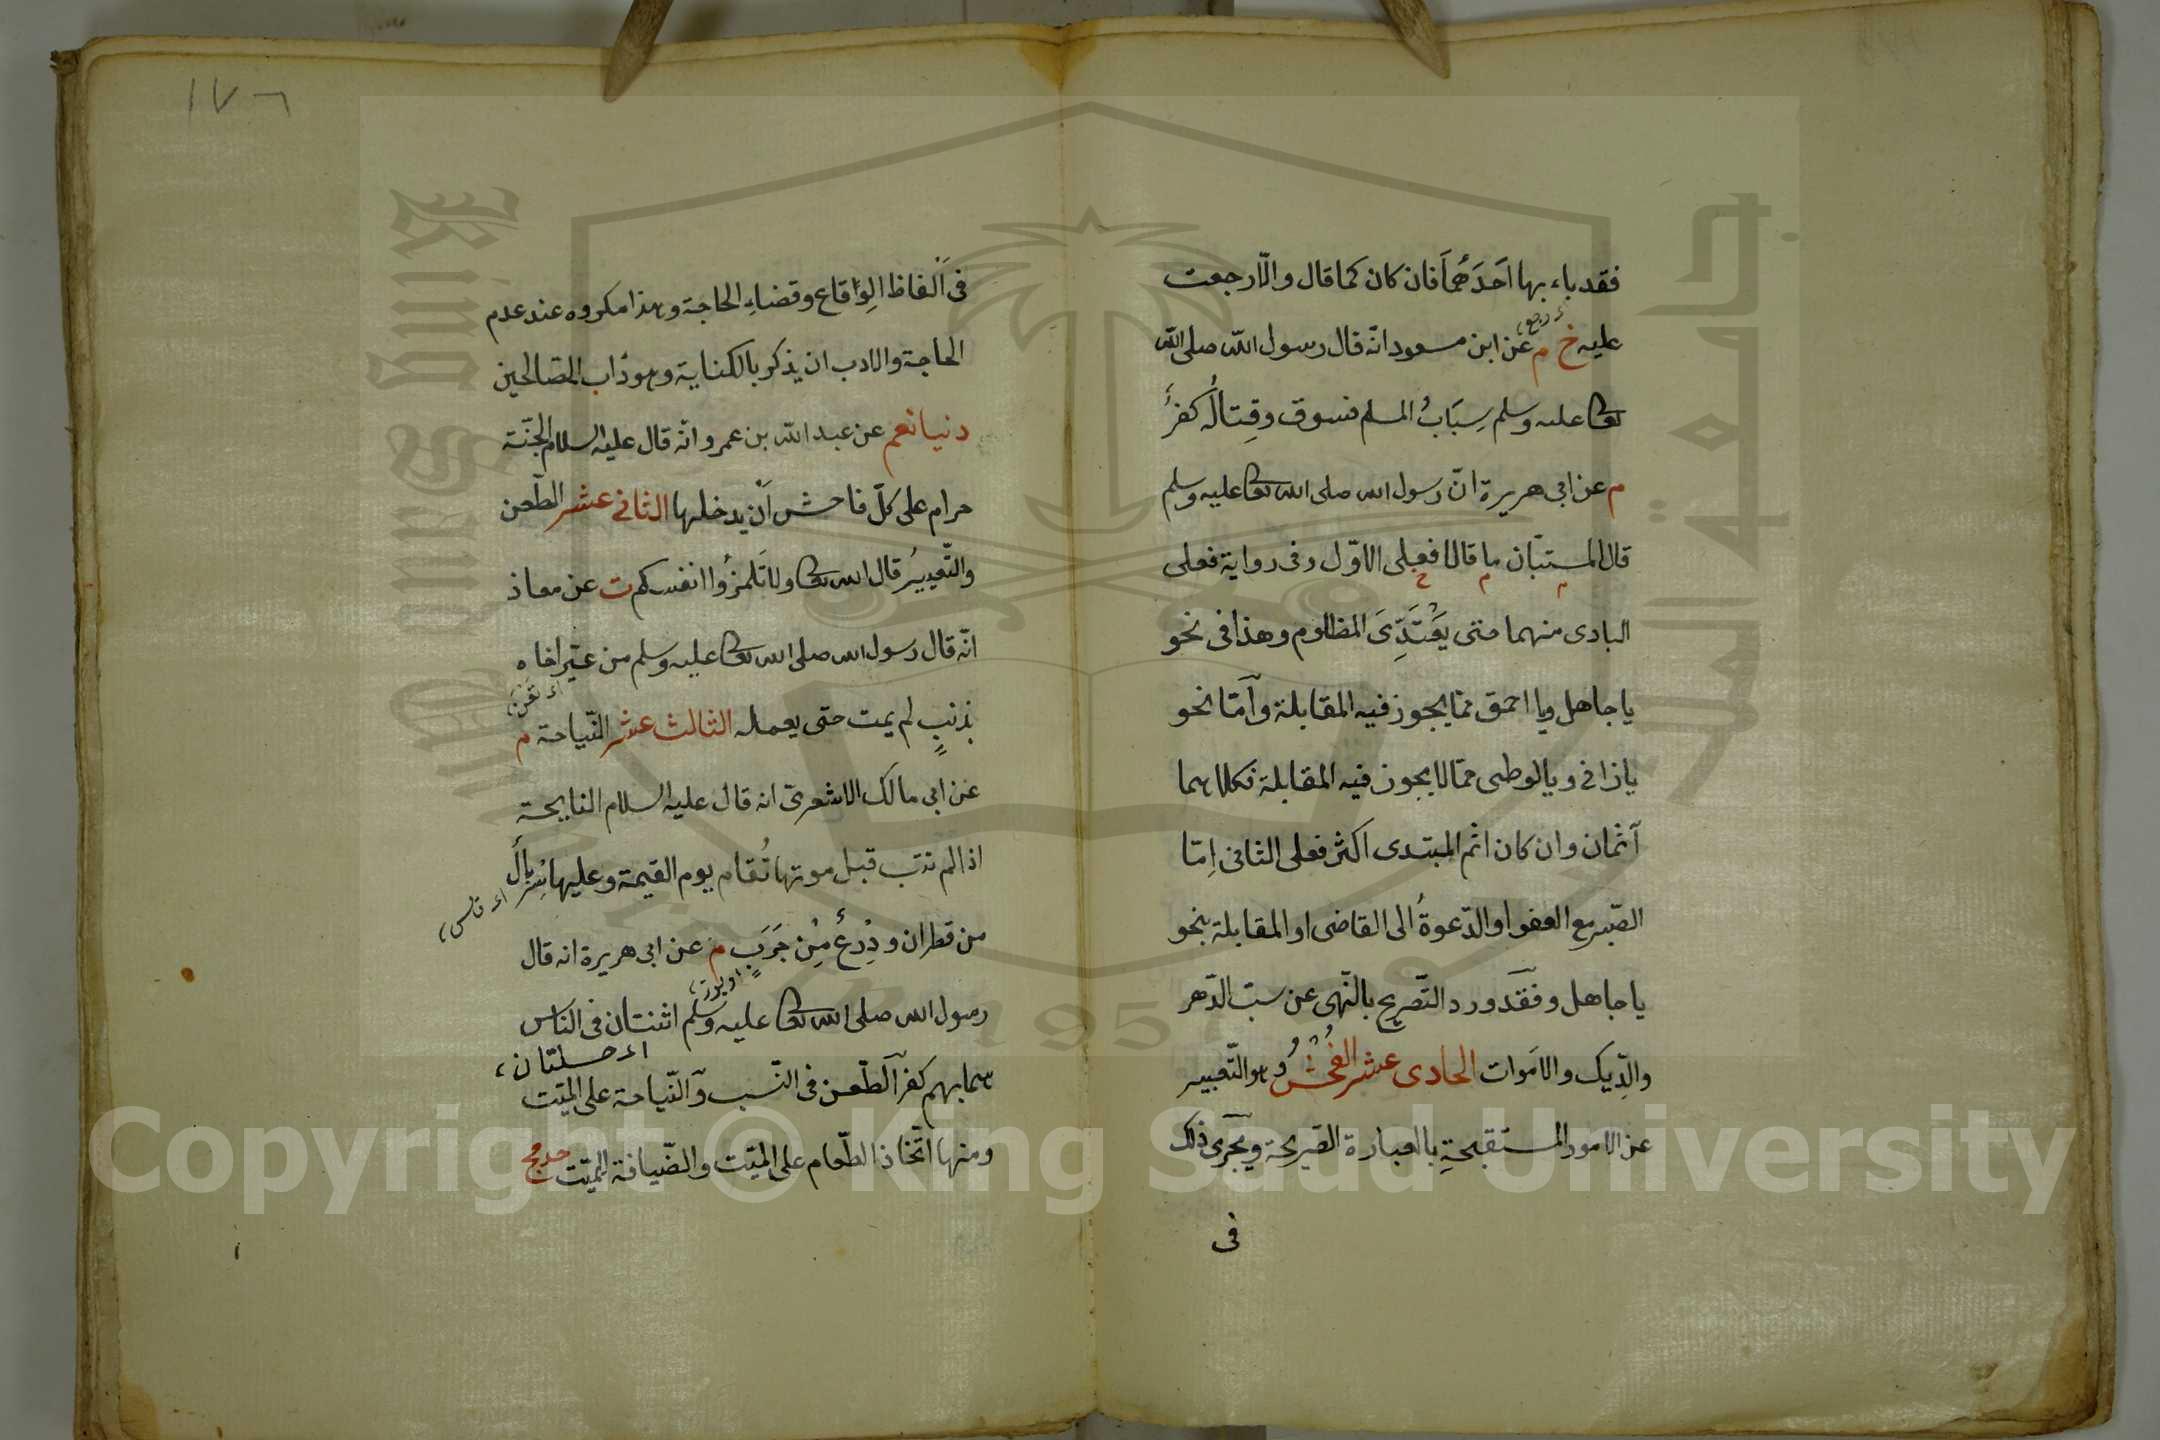 فقد باء بها اَحَدُهُمَا فان كان كما قال والّا رجعت
عليه خ م عن ابن مسعود انّه قال رسول اللّه صلى اللّه
تعالى عليه وسلم سِبَابُ المسلم فسوق وقِتالُه كفرٌ
م عن ابى هريرة انّ رسول الله صلى الله تعالى عليه وسلم
قال المستبّان ما قالا فعلى الاوّل وفى رواية فعلى
البادى منهما حتى يَعْتَدِىَ المظلوم وهذا فى نحو
يا جاهل ويا احمق ممّا يجوز فيه المقابلة وآمّا نحو
يا زانى ويا لوطى ممّا لا يجوز فيه المقابلة فكلاهما
آثمان وان كان اثم المبتدى اكثر فعلى الثانى اِمّا
الصّبر مع العفو او الدّعوةُ الى القاضى او المقابلة بنحو
يا جاهل وفقد ورد التّصريح بالنّهى عن سبّ الدّهر
والدّيك والاَموات الحادى عشر الفُحْشُ وهو التّعبير
عن الامور المستقبحةِ بالعبارة الصّريحة ويجرى ذلك
فى
١٧٦
فى اَلفاظ الوِقاع وقضاءِ الحاجة وهذا مكروه عند عدم
الحاجة والادب ان يذكر بالكناية وهو دَاب الصّالحين
دنيا نعم عن عبد اللّه بن عمرو انّه قال عليه السلام الجنّة
حرام على كلّ فاحش اَنْ يدخلها الثانى عشر الطّعن
والتّعييرُ قال الله تعالى ولا تَلمزُوا انفسكم ت عن معاذ
انّه قال رسول الله صلى الله تعالى عليه وسلم من عيّر اخاه
بذنبٍ لم يمت حتى يعمله الثالث عشر النّياحة م
عن ابى مالك الاشعرىّ انه قال عليه السلام النايحة
اذا لم تتب قبل موتها تُقام يوم القيمة وعليها سِربالٌ
من قطران ودِرْعٌ مِنْ جَرَبٍ م عن ابى هريرة انه قال
رسول الله صلى الله تعالى عليه وسلم اثنتان فى الناس
اى خصلتان
هما بهم كفر اَلطّعن فى النّسب وَالنّياحة على الميّت
ومنها اتّخاذ الطّعام على الميّت والضّيافة للميّت
Copyright © King Saud University
King Saud University
جامعة الملك سعود
1957